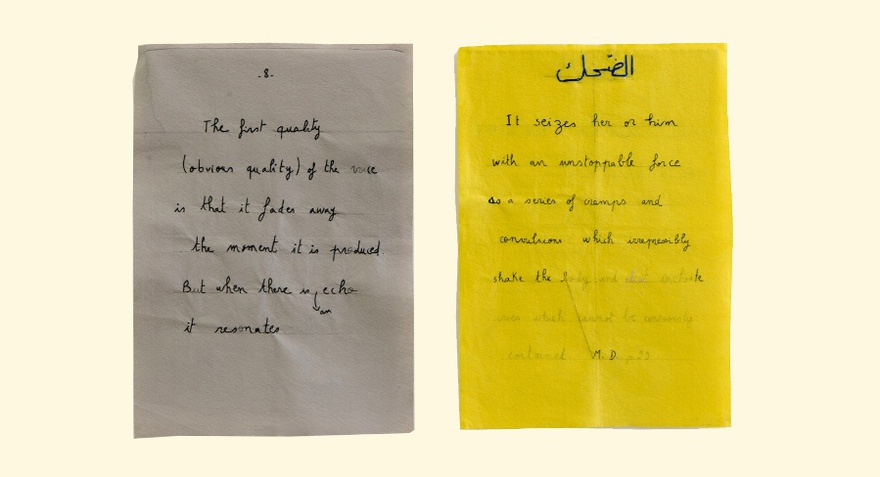 -8-
The first quality
(obvious quality) of the voice
is that it fades away
the moment it is produced.
But when there is, echo
an
it resonates
الضّحك
It seizes her or him
with an unstoppable force
as a series of cramps and
convulsions which irrepressibly
shake the body and
which cannot be
contained M. D. p22